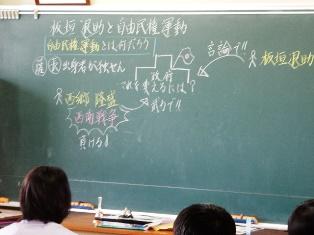 板垣退助と自由民権運動
自由民権運動とは何だろう
薩 長 出身者が独せん
政府
これを変えるには?
武力で!!
言論で!!
板垣退助
西郷隆盛
西南戦争
負ける!